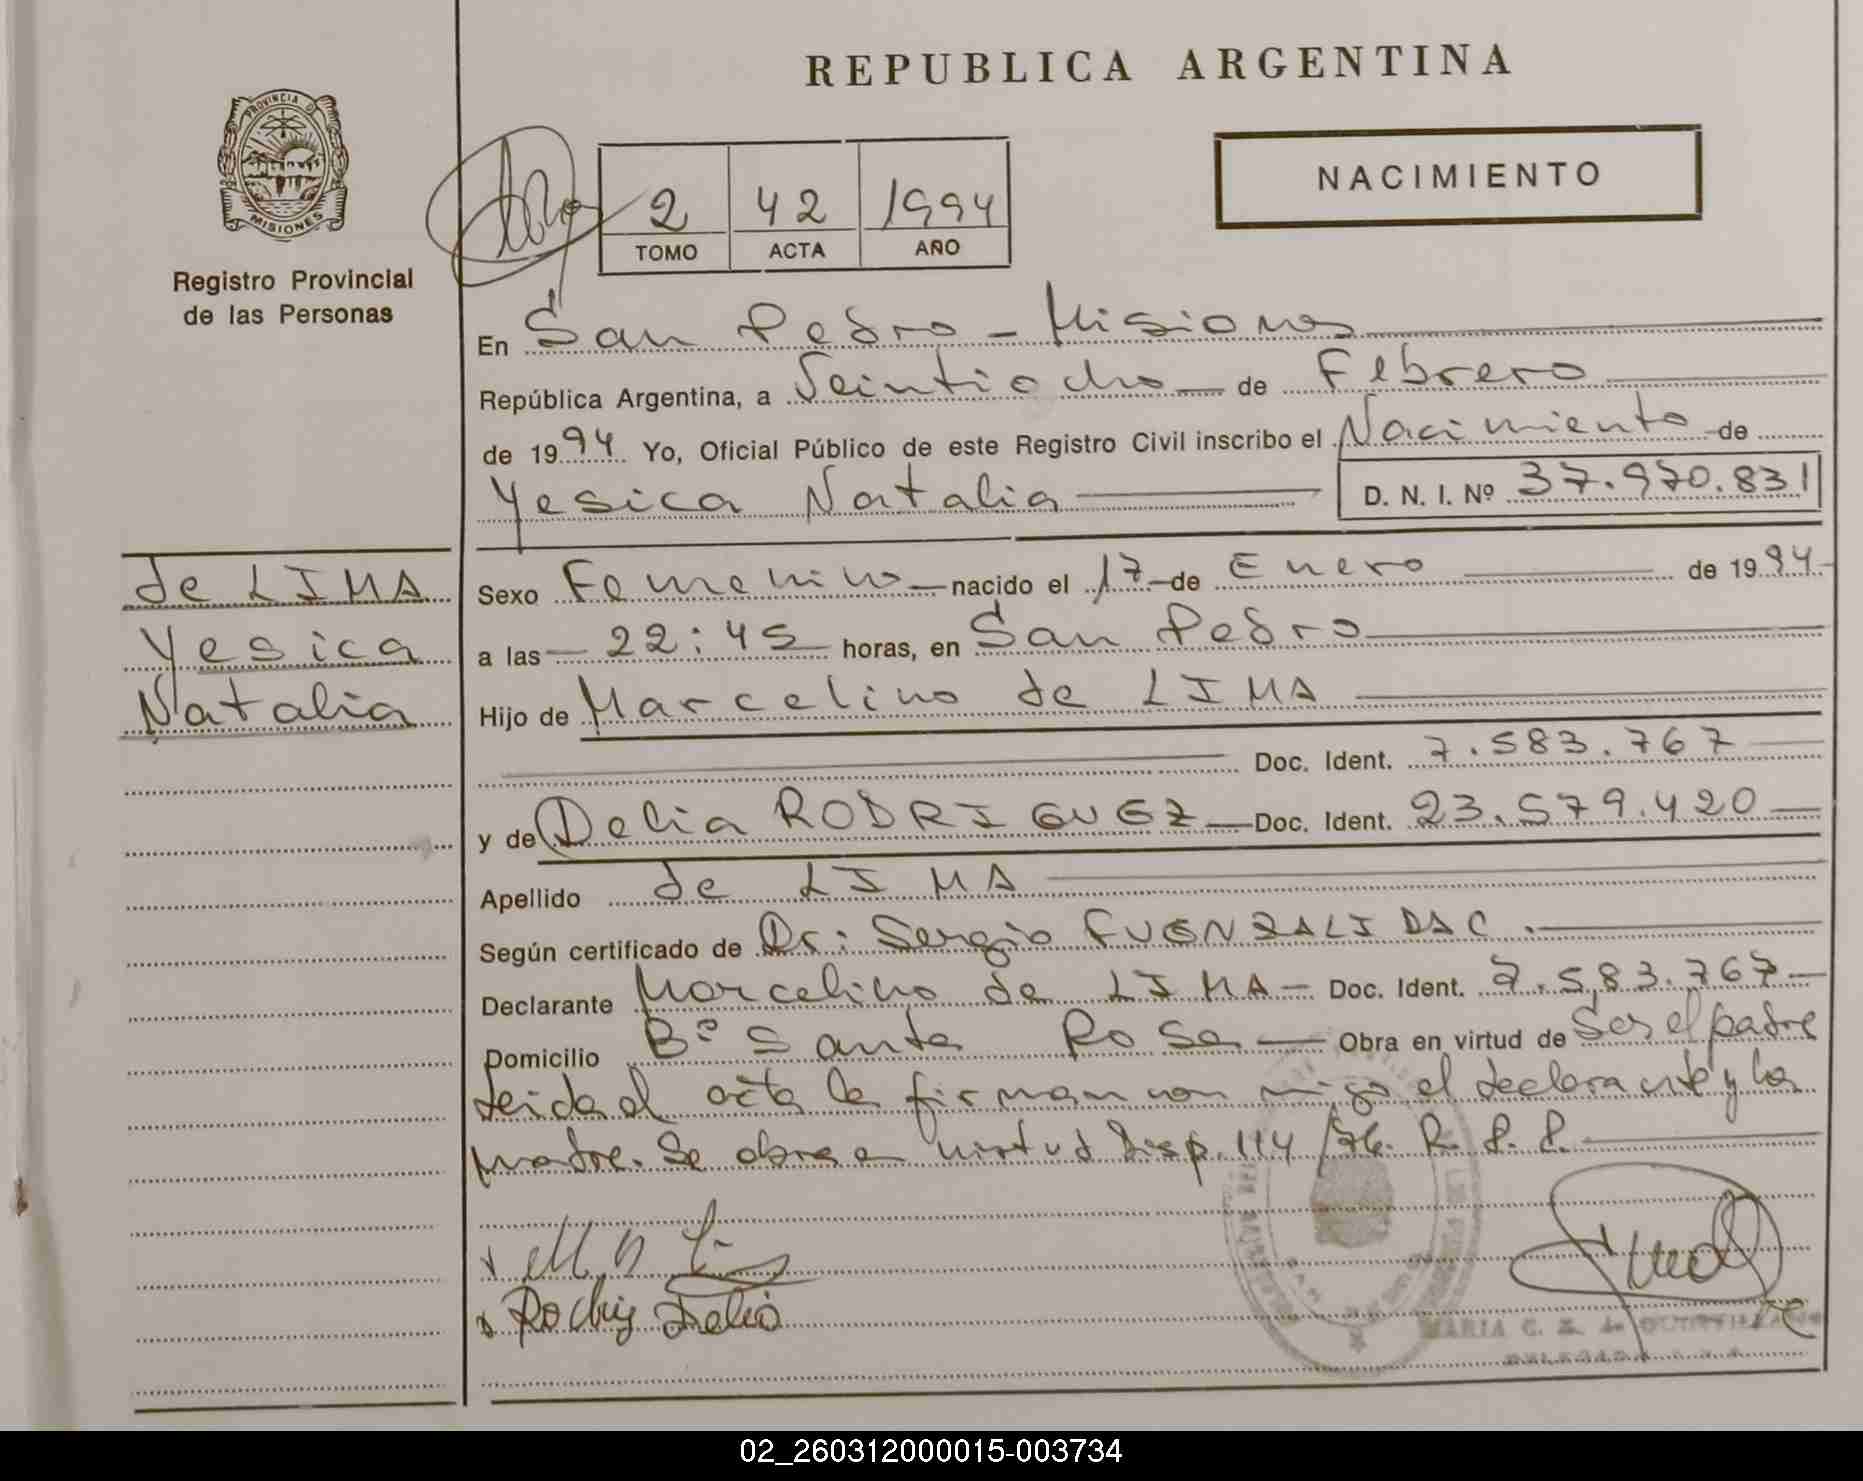 REPUBLICA ARGENTINA
PROVINCIA D MISIONES
Registro Provincial
de las Personas
2 42 1994
TOMO ACTA AÑO
NACIMIENTO
En San Pedro - Misiones
República Argentina, a Veintiocho de Febrero
de 1994 Yo, Oficial Público de este Registro Civil inscribo el Nacimiento de
Yesica Natalia D. N. I. Nº 37.970.831
de LIMA
Yesica
Natalia
Sexo Femenino nacido el 17 de Enero de 1994
a las 22:45 horas, en San Pedro
Hijo de Marcelino de LIMA
Doc. Ident. 7.583.767
y de Delia RODRIGUEZ Doc. Ident. 23.579.420
Apellido de LIMA
Según certificado de Dr: Sergio FUENZALIDA C.
Declarante Marcelino de LIMA - Doc. Ident. 7.583.767
Domicilio Bº Santa Rosa Obra en virtud de Ser el padre
Leida el acta la firman con migo el declarante y la
madre. Se obra en virtud Disp. 114/76. R. P. P.
Delia
MARIA C.
DELEGADA
02_260312000015-003734